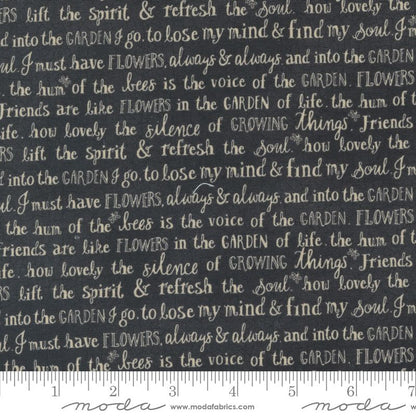 RS lift the spirit & refresh the soul. how lovely the
and into the GARDEN I go. to lose my mind & find my
oul. I must have FLOWERS, always & always. and into the
. the hum of the bees is the voice of the GARDEN. FLOWERS
friends are like FLOWERS in the GARDEN of life. the hum of t
life. how lovely the silence of GROWING things. friends
RS lift the spirit & refresh the soul. how lovely the
and into the GARDEN I go. to lose my mind & find my
oul. I must have FLOWERS, always & always. and into the
. the hum of the bees is the voice of the GARDEN. FLOWERS
friends are like FLOWERS in the GARDEN of life. the hum of t
life. how lovely the silence of GROWING things. friends
RS lift the spirit & refresh the soul. how lovely the
and into the GARDEN I go. to lose my mind & find my soul. I m
oul. I must have FLOWERS, always & always. and into the
. the hum of the bees is the voice of the GARDEN. FLOWERS
1 2 3 4 5 6
moda www.modafabrics.com moda